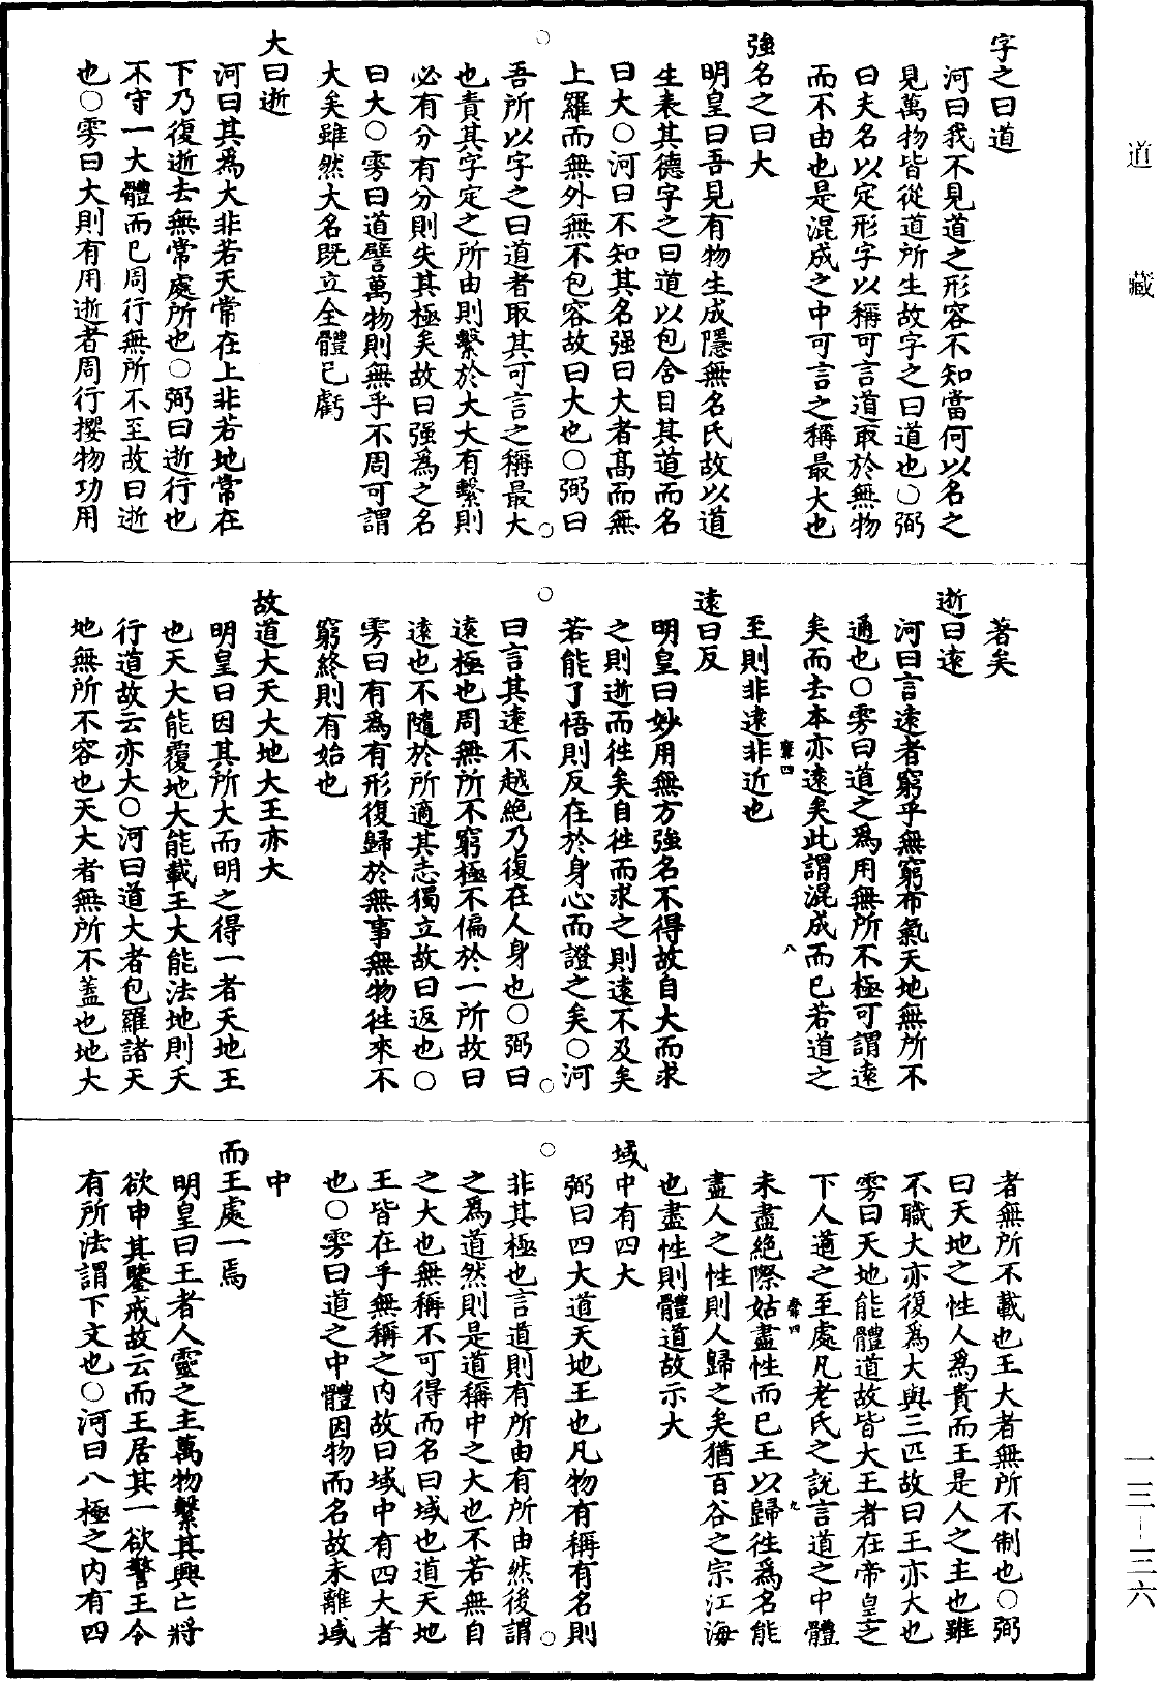 道藏
字之曰道
河曰我不見道之形容不知當何以名之
見萬物皆從道所生故字之曰道也○弼
曰夫名以定形字以稱可言道取於無物
而不由也是混成之中可言之稱最大也
強名之曰大
明皇曰吾見有物生成隱無名氏故以道
生表其德字之曰道以包含目其道而名
曰大○河曰不知其名强曰大者高而無
上羅而無外無不包容故曰大也○弼曰
吾所以字之曰道者取其可言之稱最大
也責其字定之所由則繫於大大有繫則
必有分有分則失其極矣故曰强爲之名
曰大○雱曰道譬萬物則無乎不周可謂
大矣雖然大名既立全體已虧
大曰逝
河曰其爲大非若天常在上非若地常在
下乃復逝去無常處所也○弼曰逝行也
不守一大體而已周行無所不至故曰逝
也○雱曰大則有用逝者周行攖物功用
著矣
逝曰遠
河曰言遠者窮乎無窮布氣天地無所不
通也○雱曰道之爲用無所不極可謂遠
矣而去本亦遠矣此謂混成而已若道之
至則非遠非近也
遠曰反
明皇曰妙用無方強名不得故自大而求
之則逝而徃矣自徃而求之則遠不及矣
若能了悟則反在於身心而證之矣○河
曰言其遠不越絶乃復在人身也○弼曰
遠極也周無所不窮極不偏於一所故曰
遠也不隨於所適其志獨立故曰返也○
雱曰有爲有形復歸於無事無物徃來不
窮終則有始也
故道大天大地大王亦大
明皇曰因其所大而明之得一者天地王
也天大能覆地大能載王大能法地則天
行道故云亦大○河曰道大者包羅諸天
地無所不容也天大者無所不蓋也地大
者無所不載也王大者無所不制也○弼
曰天地之性人爲貴而王是人之主也雖
不職大亦復爲大與三匹故曰王亦大也
雱曰天地能體道故皆大王者在帝皇之
下人道之至處凡老氏之説言道之中體
未盡絶際姑盡性而已王以歸徃爲名能
盡人之性則人歸之矣猶百谷之宗江海
也盡性則體道故示大
域中有四大
弼曰四大道天地王也凡物有稱有名則
非其極也言道則有所由有所由然後謂
之爲道然則是道稱中之大也不若無自
之大也無稱不可得而名曰域也道天地
王皆在乎無稱之内故曰域中有四大者
也○雱曰道之中體因物而名故未離域
中
而王處一焉
明皇曰王者人靈之主萬物繫其興亡將
欲申其鑒戒故云而王居其一欲警王令
有所法謂下文也○河曰八極之内有四
一三－三六